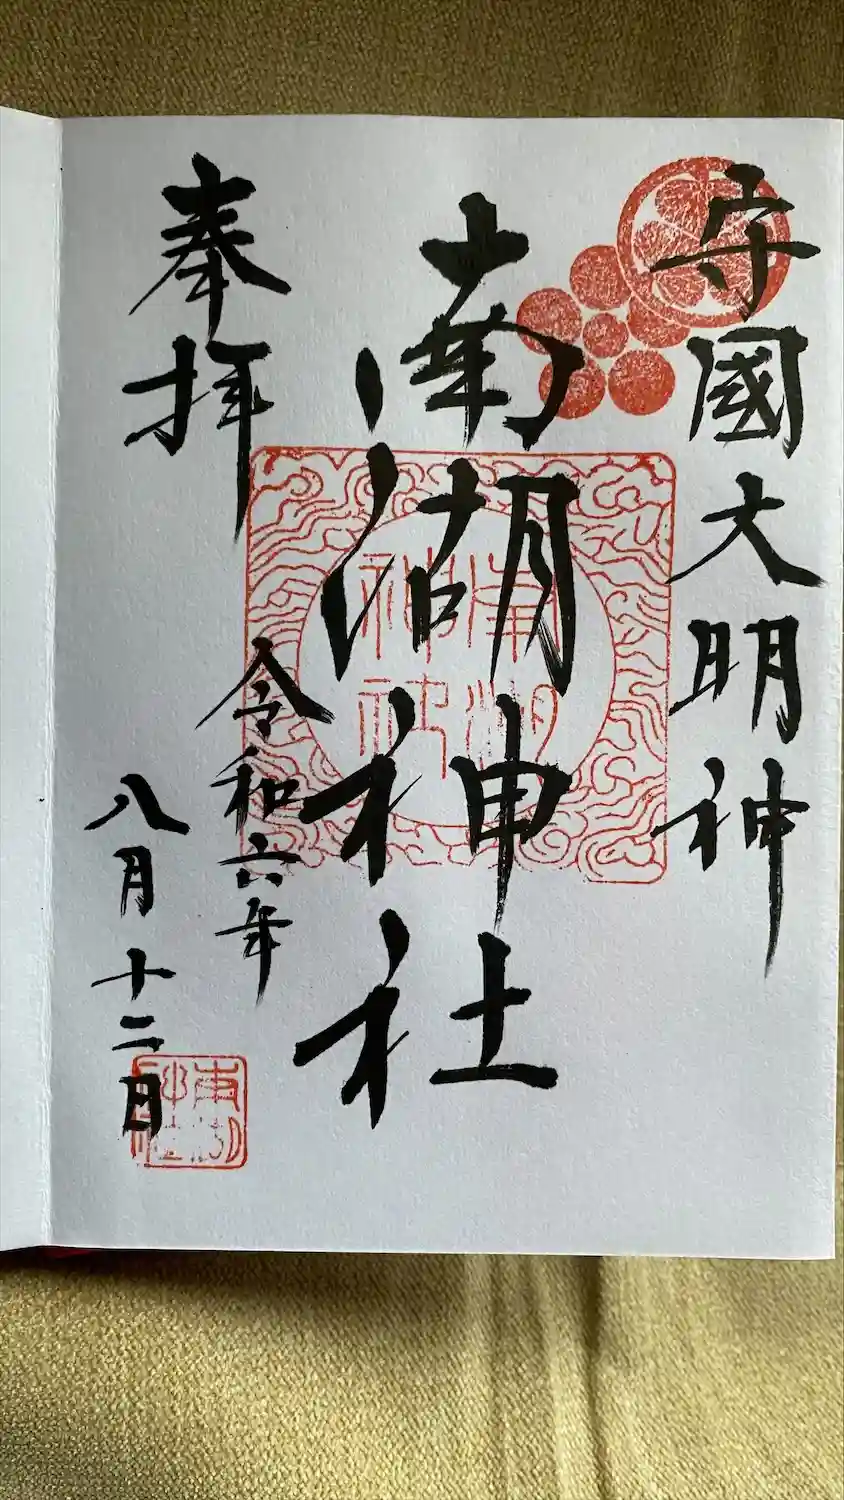 守國大明神
南湖神社
奉拝
令和六年
八月十二日
南湖
神社
南湖
神社